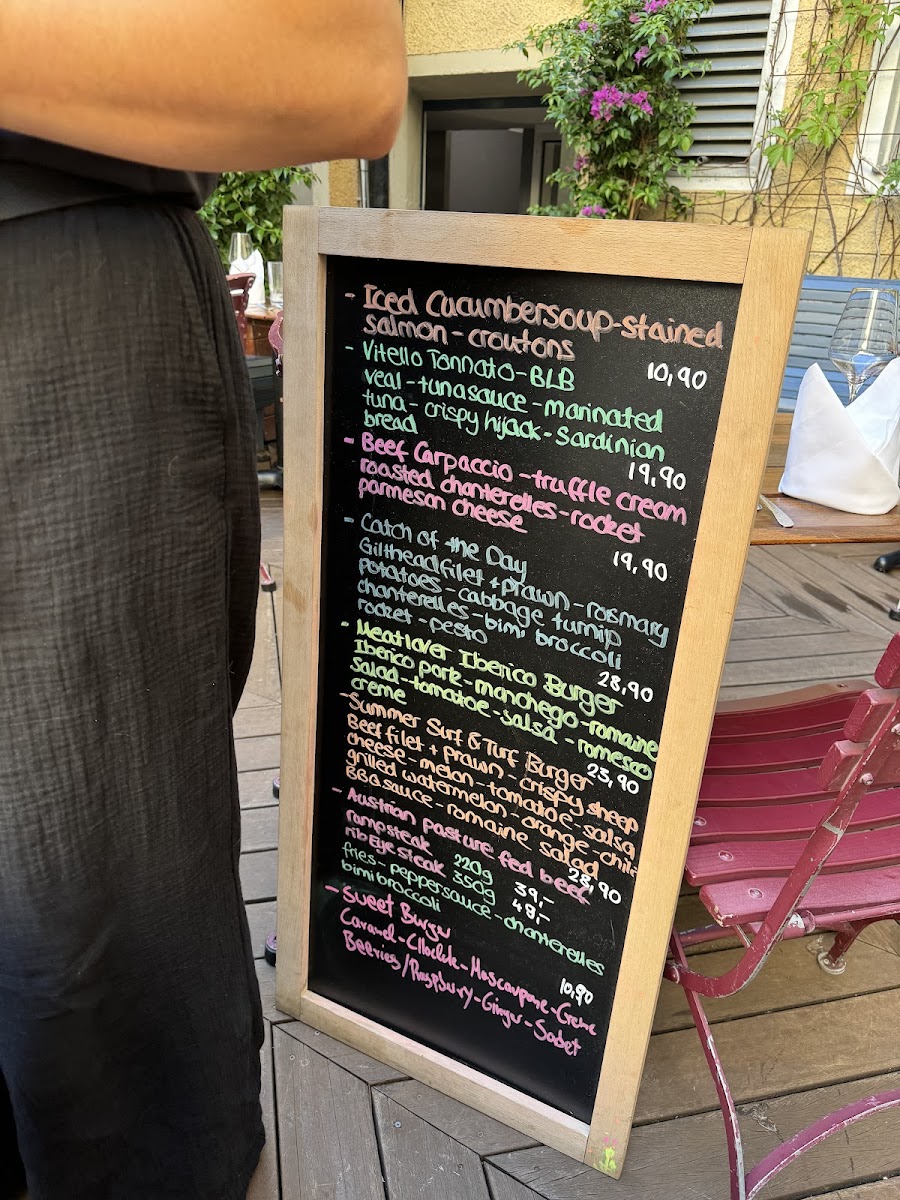 - Iced Cucumbersoup - stained
salmon - croutons
10,90
- Vitello Tonnato - BLB
veal - tunasauce - marinated
tuna - crispy hijack - Sardinian
bread
19,90
- Beef Carpaccio - truffle cream
roasted chanterelles - rocket
parmesan cheese
19,90
- Catch of the Day
Giltheadfilet + prawn - rosmary
potatoes - cabbage turnip
chanterelles - bimi broccoli
rocket - pesto
28,90
- Meatlover Iberico Burger
Iberico pork - manchego - romaine
salad - tomatoe - salsa - romesco
creme
25,90
- Summer Surf & Turf Burger
Beef filet + prawn - crispy sheep
cheese - melon - tomatoe - salsa
grilled watermelon - orange - chili
BBQ sauce - romaine salad
28,90
- Austrian pasture fed beef
rumpsteak 220g 39,-
ribEye steak 350g 48,-
fries - peppersauce - chanterelles
bimi broccoli
- Sweet Burger
10,90
Caramel - - Mascarpone - Creme
/ Raspbury - Ginger - Sobet